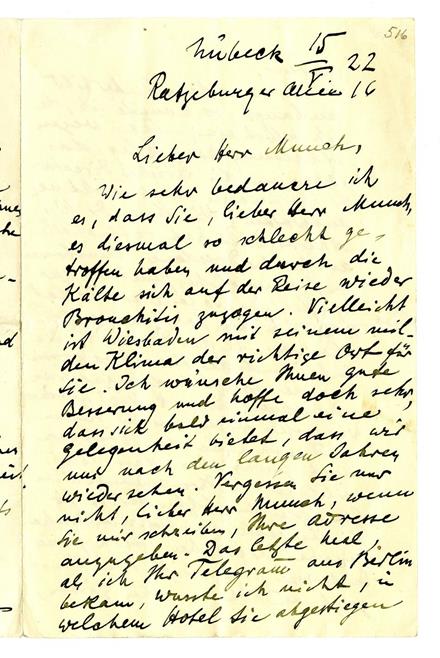 516
Lübeck 15/V 22
Ratzeburger Allee 16
Lieber Herr Munch,
Wie sehr bedaure ich
es, dass Sie, lieber Herr Munch,
es diesmal so schlecht ge-
troffen haben und durch die
Kälte sich auf der Reise wieder
Bronchitis zuzogen. Vielleicht
ist Wiesbaden mit seinem mil-
den Klima der richtige Ort für
Sie. Ich wünsche Ihnen gute
Besserung und hoffe doch sehr,
dass sich bald einmal eine
Gelegenheit bietet, dass wir
uns nach den langen Jahren
wiedersehen. Vergessen Sie nur
nicht, lieber Herr Munch, wenn
Sie mir schreiben, Ihre Adresse
anzugeben. Das letzte Mal,
als ich Ihr Telegram aus Berlin
bekam, wusste ich nicht, in
welchem Hotel Sie abgestiegen